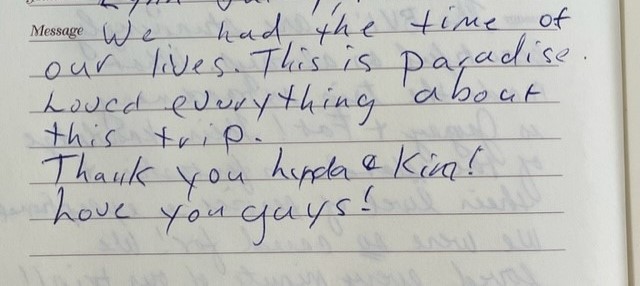 Message We had the time of
our lives. This is paradise.
Loved everything about
this trip.
Thank you & Kim!
Love you guys!